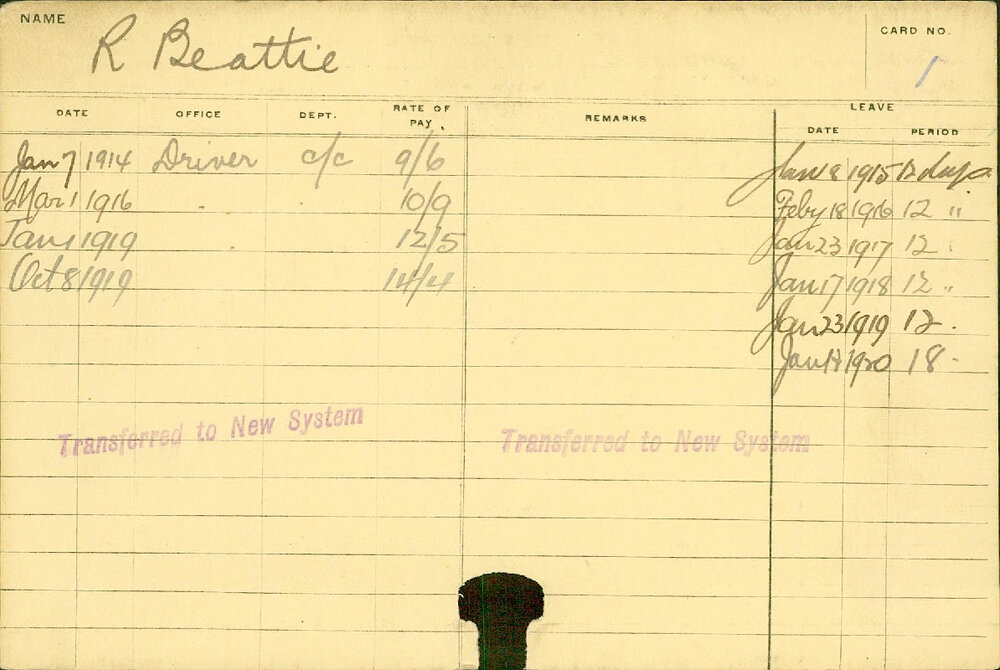 NAME R Beattie CARD NO. 1
DATE OFFICE DEPT. RATE OF PAY. REMARKS LEAVE DATE PERIOD
Jan 7 1914 Driver c/c 9/6 Jan 8 1915 12 days
Mar 1 1916 . 10/9 Feby 18 1916 12 "
Jan 1 1919 . 12/5 Jan 23 1917 12 "
Oct 8 1919 14/4 Jan 17 1918 12 "
Jan 23 1919 12 .
Jan 1920 18 -
Transferred to New System Transferred to New System